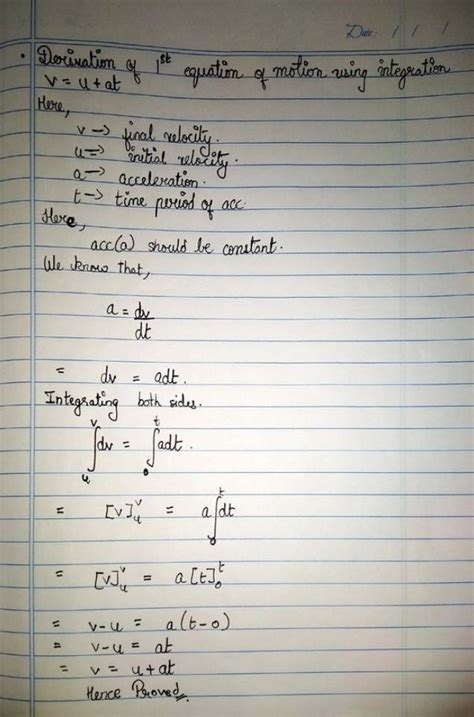 Date: / / /
• Derivation of 1st equation of motion using integration
v = u + at
Here,
v → final velocity.
u → initial velocity.
a → acceleration.
t → time period of acc.
Here,
acc(a) should be constant.
We know that,
a = dv/dt
= dv = adt.
Integrating both sides.
∫_u^v dv = ∫_0^t adt.
= [v]_u^v = a ∫_0^t dt
= [v]_u^v = a [t]_0^t
= v-u = a(t-0)
= v-u = at
= v = u + at
Hence Proved.